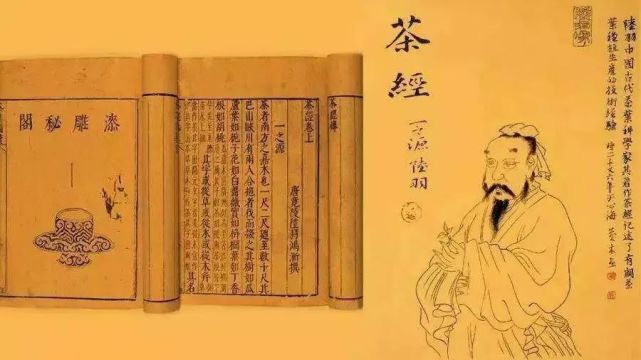 漆雕秘閣
茶經卷上
唐竟陵陸羽鴻漸撰
一之源
茶者南方之嘉木也一尺二尺迺至數十尺其
巴山峽川有兩人合抱者伐而掇之其樹如瓜
蘆葉如梔子花如白薔薇實如栟櫚葉如丁香
根如胡桃
其字或從草或從木或從草木并
其名
茶經
一之源 陸羽
陸羽中國古代茶葉科學家其著作茶經記述了有關茶
葉種植生產的技術經驗